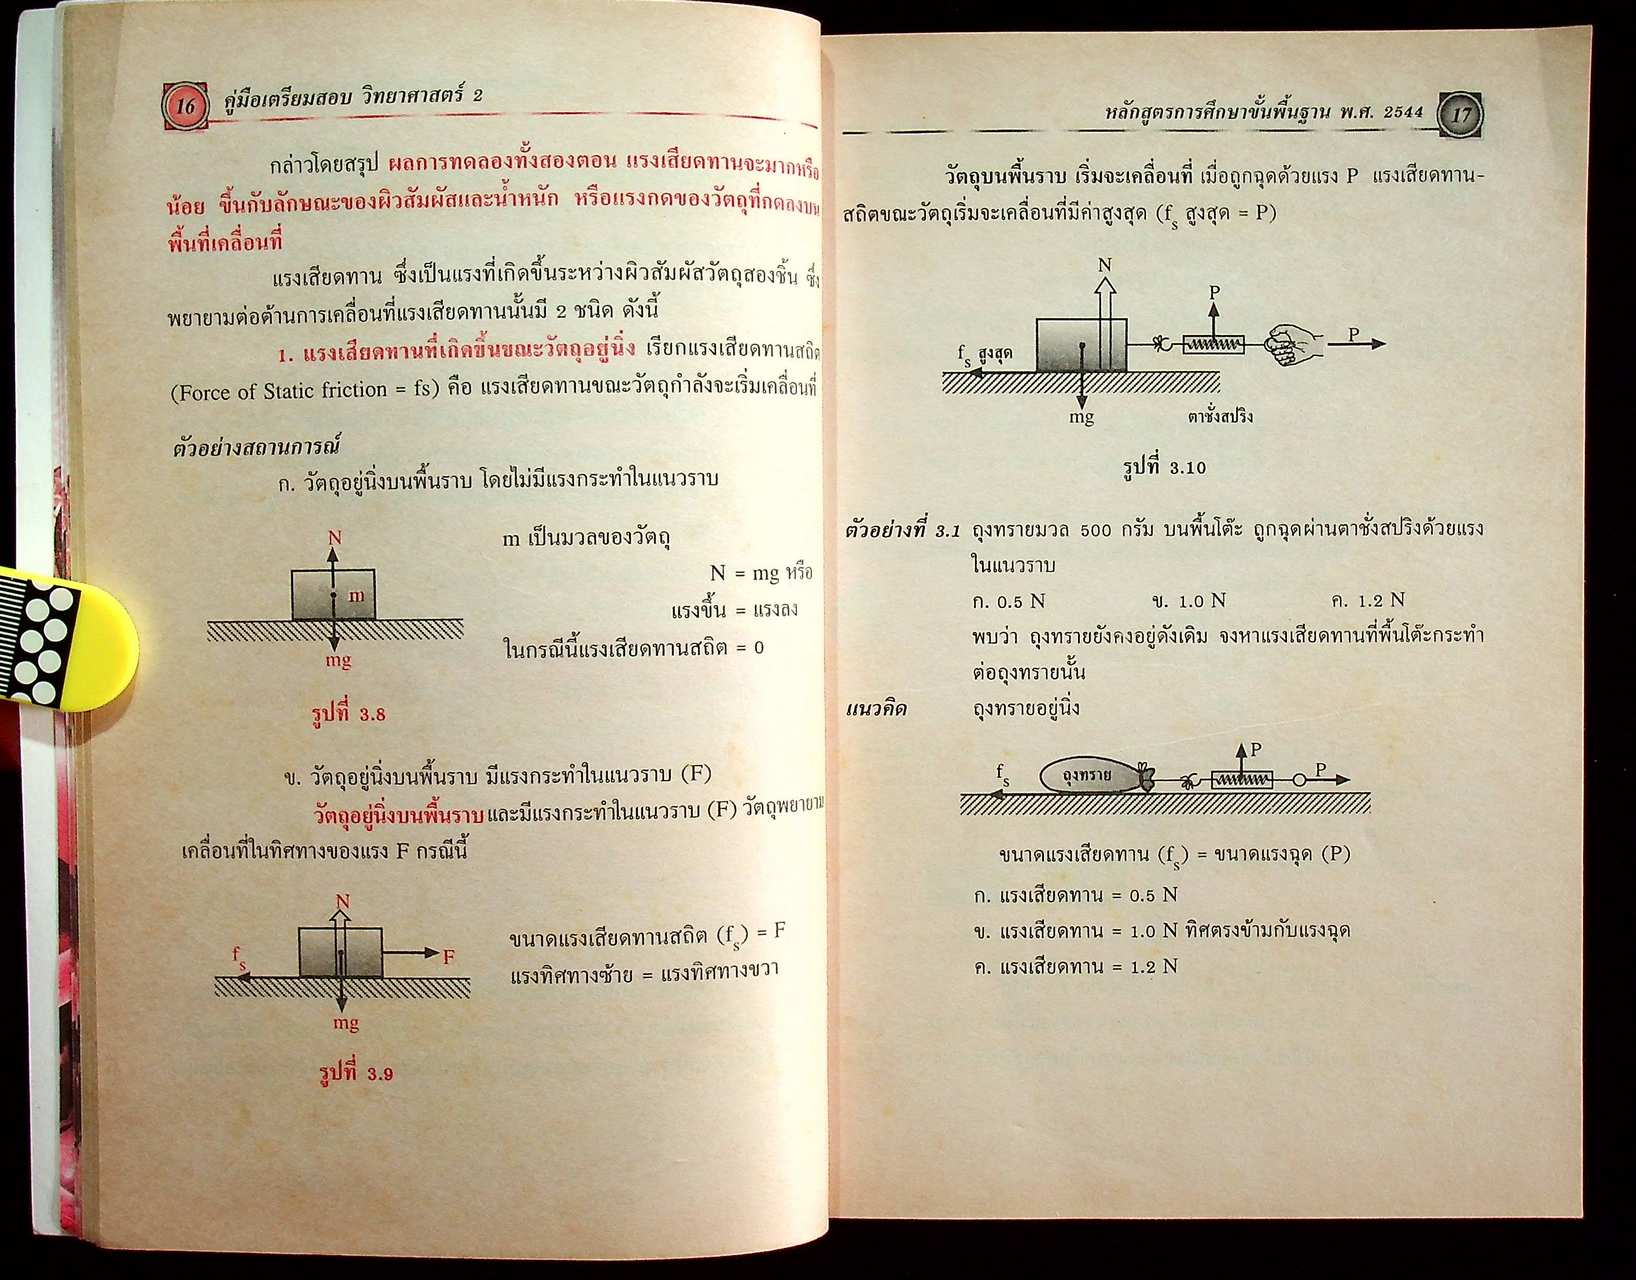 16 คู่มือเตรียมสอบ วิทยาศาสตร์ 2
กล่าวโดยสรุป ผลการทดลองทั้งสองตอน แรงเสียดทานจะมากหรือ
น้อย ขึ้นกับลักษณะของผิวสัมผัสและน้ำหนัก หรือแรงกดของวัตถุที่กดลงบน
พื้นที่เคลื่อนที่
แรงเสียดทาน ซึ่งเป็นแรงที่เกิดขึ้นระหว่างผิวสัมผัสวัตถุสองชิ้น ซึ่ง
พยายามต่อต้านการเคลื่อนที่แรงเสียดทานนั้นมี 2 ชนิด ดังนี้
1. แรงเสียดทานที่เกิดขึ้นขณะวัตถุอยู่นิ่ง เรียกแรงเสียดทานสถิต
(Force of Static friction = fs) คือ แรงเสียดทานขณะวัตถุกำลังจะเริ่มเคลื่อนที่
ตัวอย่างสถานการณ์
ก. วัตถุอยู่นิ่งบนพื้นราบ โดยไม่มีแรงกระทำในแนวราบ
N
m
mg
รูปที่ 3.8
m เป็นมวลของวัตถุ
N = mg หรือ
แรงขึ้น = แรงลง
ในกรณีนี้แรงเสียดทานสถิต = 0
ข. วัตถุอยู่นิ่งบนพื้นราบ มีแรงกระทำในแนวราบ (F)
วัตถุอยู่นิ่งบนพื้นราบและมีแรงกระทำในแนวราบ (F) วัตถุพยายาม
เคลื่อนที่ในทิศทางของแรง F กรณีนี้
N
fs
F
mg
รูปที่ 3.9
ขนาดแรงเสียดทานสถิต (fs) = F
แรงทิศทางซ้าย = แรงทิศทางขวา
หลักสูตรการศึกษาขั้นพื้นฐาน พ.ศ. 2544 17
วัตถุบนพื้นราบ เริ่มจะเคลื่อนที่ เมื่อถูกฉุดด้วยแรง P แรงเสียดทาน-
สถิตขณะวัตถุเริ่มจะเคลื่อนที่มีค่าสูงสุด (fs สูงสุด = P)
N
P
fs สูงสุด
P
mg
ตาชั่งสปริง
รูปที่ 3.10
ตัวอย่างที่ 3.1 ถุงทรายมวล 500 กรัม บนพื้นโต๊ะ ถูกฉุดผ่านตาชั่งสปริงด้วยแรง
ในแนวราบ
ก. 0.5 N ข. 1.0 N ค. 1.2 N
พบว่า ถุงทรายยังคงอยู่ดังเดิม จงหาแรงเสียดทานที่พื้นโต๊ะกระทำ
ต่อถุงทรายนั้น
แนวคิด ถุงทรายอยู่นิ่ง
P
fs
ถุงทราย
P
ขนาดแรงเสียดทาน (fs) = ขนาดแรงฉุด (P)
ก. แรงเสียดทาน = 0.5 N
ข. แรงเสียดทาน = 1.0 N ทิศตรงข้ามกับแรงฉุด
ค. แรงเสียดทาน = 1.2 N